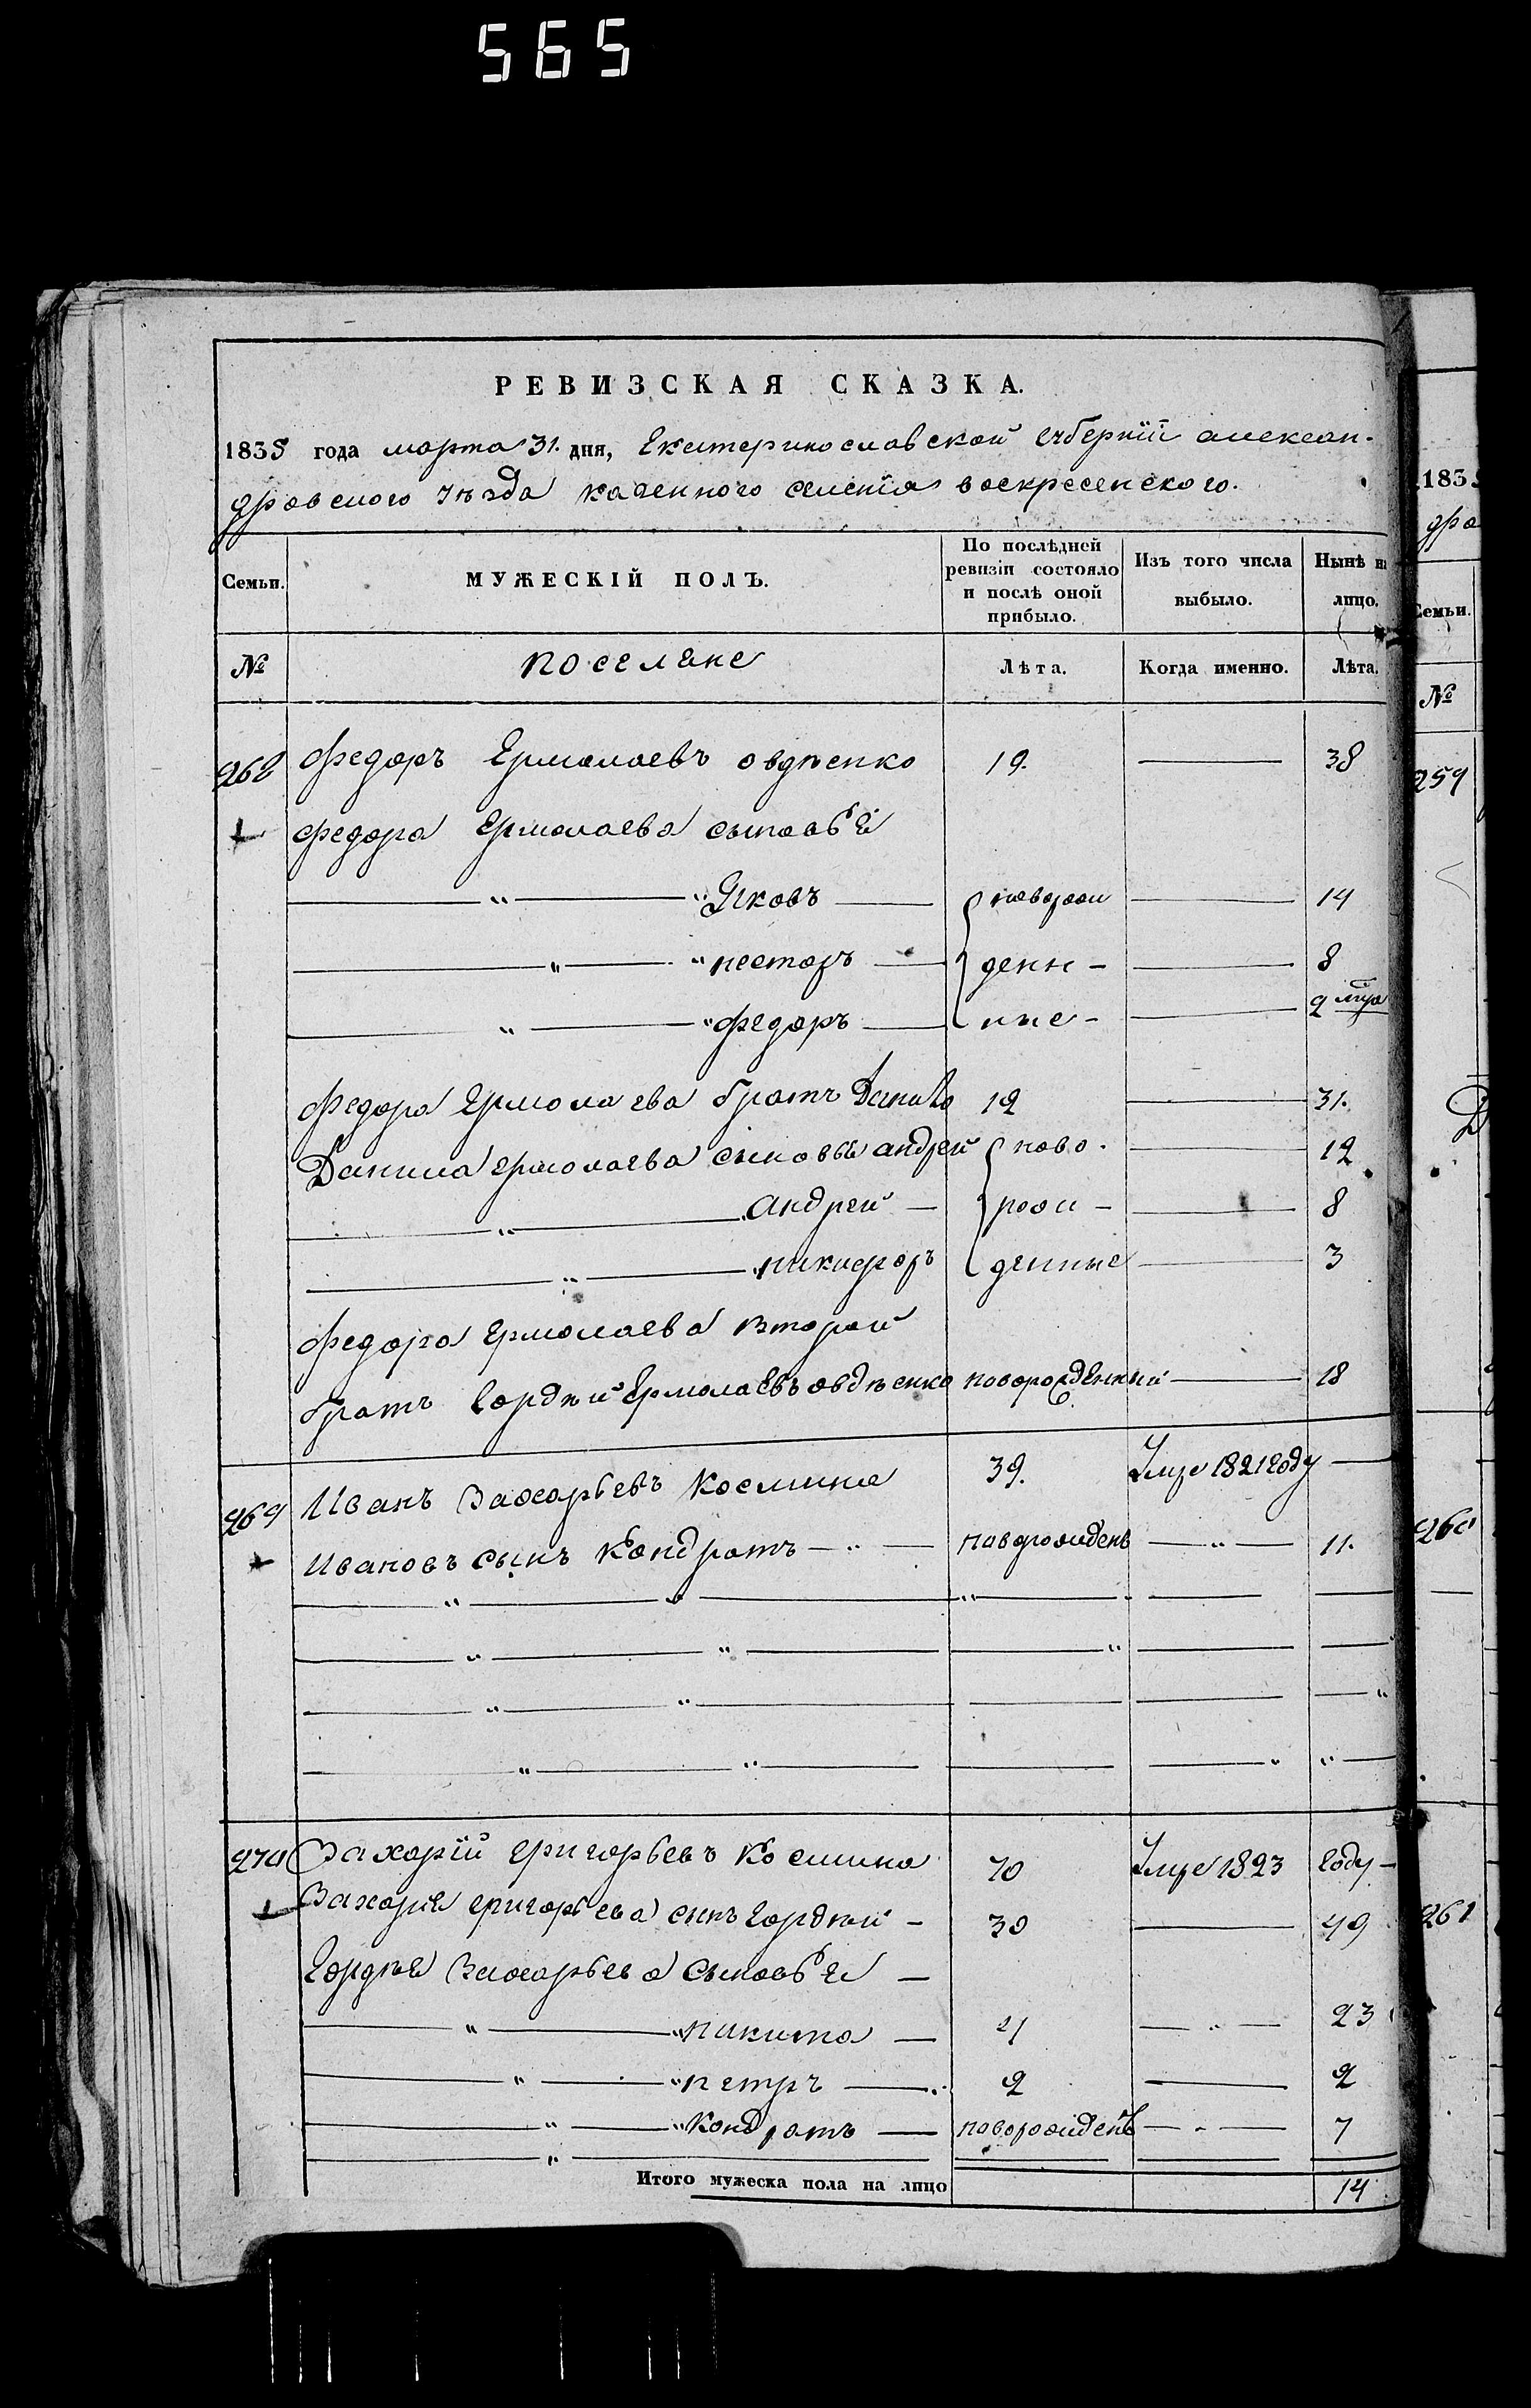 565
РЕВИЗСКАЯ СКАЗКА.
1835 года марта 31. дня, Екатеринославской губернїи алексан-
дровского уѣзда казенного селенїя воскресенского.
Семьи. МУЖЕСКІЙ ПОЛЪ. По послѣдней ревизіи состояло и послѣ оной прибыло. Изъ того числа выбыло. Нынѣ на лицо.
№ поселяне Лѣта. Когда именно. Лѣта.
268 Федоръ Ермолаевъ овдѣенко 19. — 38
федора Ермолаева сыновьѣ
" — " Яковъ — новорож — 14
" — " несторъ — денн - — 8
" — " федоръ — ные - — 2 мца
федора Ермолаева братъ Данило 12 — 31.
Данила ермолаева сыновьѣ андрей ново- — 12
" — андрей — рожи - — 8
" — никифоръ денные — 3
федора Ермолаева второй
братъ Гордѣй Ермолаевъ овдѣенко новорожденный — 18
269 Иванъ Захарьевъ Космина 39. Умре 1821 году —
Ивановъ сынъ Кондратъ — " — новорожиденъ — " — 11.
270 Захарїй григорьевъ Космина 70 Умре 1823 году -
Захарїя григорьева сынъ гордѣй - 30 — 49
Гордѣя Захарьева сыновьѣ —
" — " никита — 4 — " — 23
" — " петръ — 2 — 2
" — " Кондратъ — новорожиденъ — " — 7
Итого мужеска пола на лицо 14
1835
дро
Семьи.
№
259
260
261